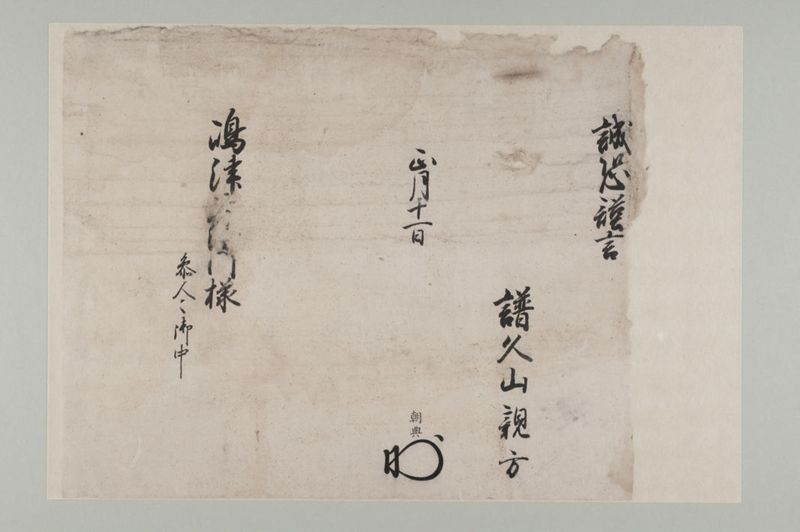 誠恐謹言
譜久山親方
正月十一日
朝典
嶋津 様
参人々御中